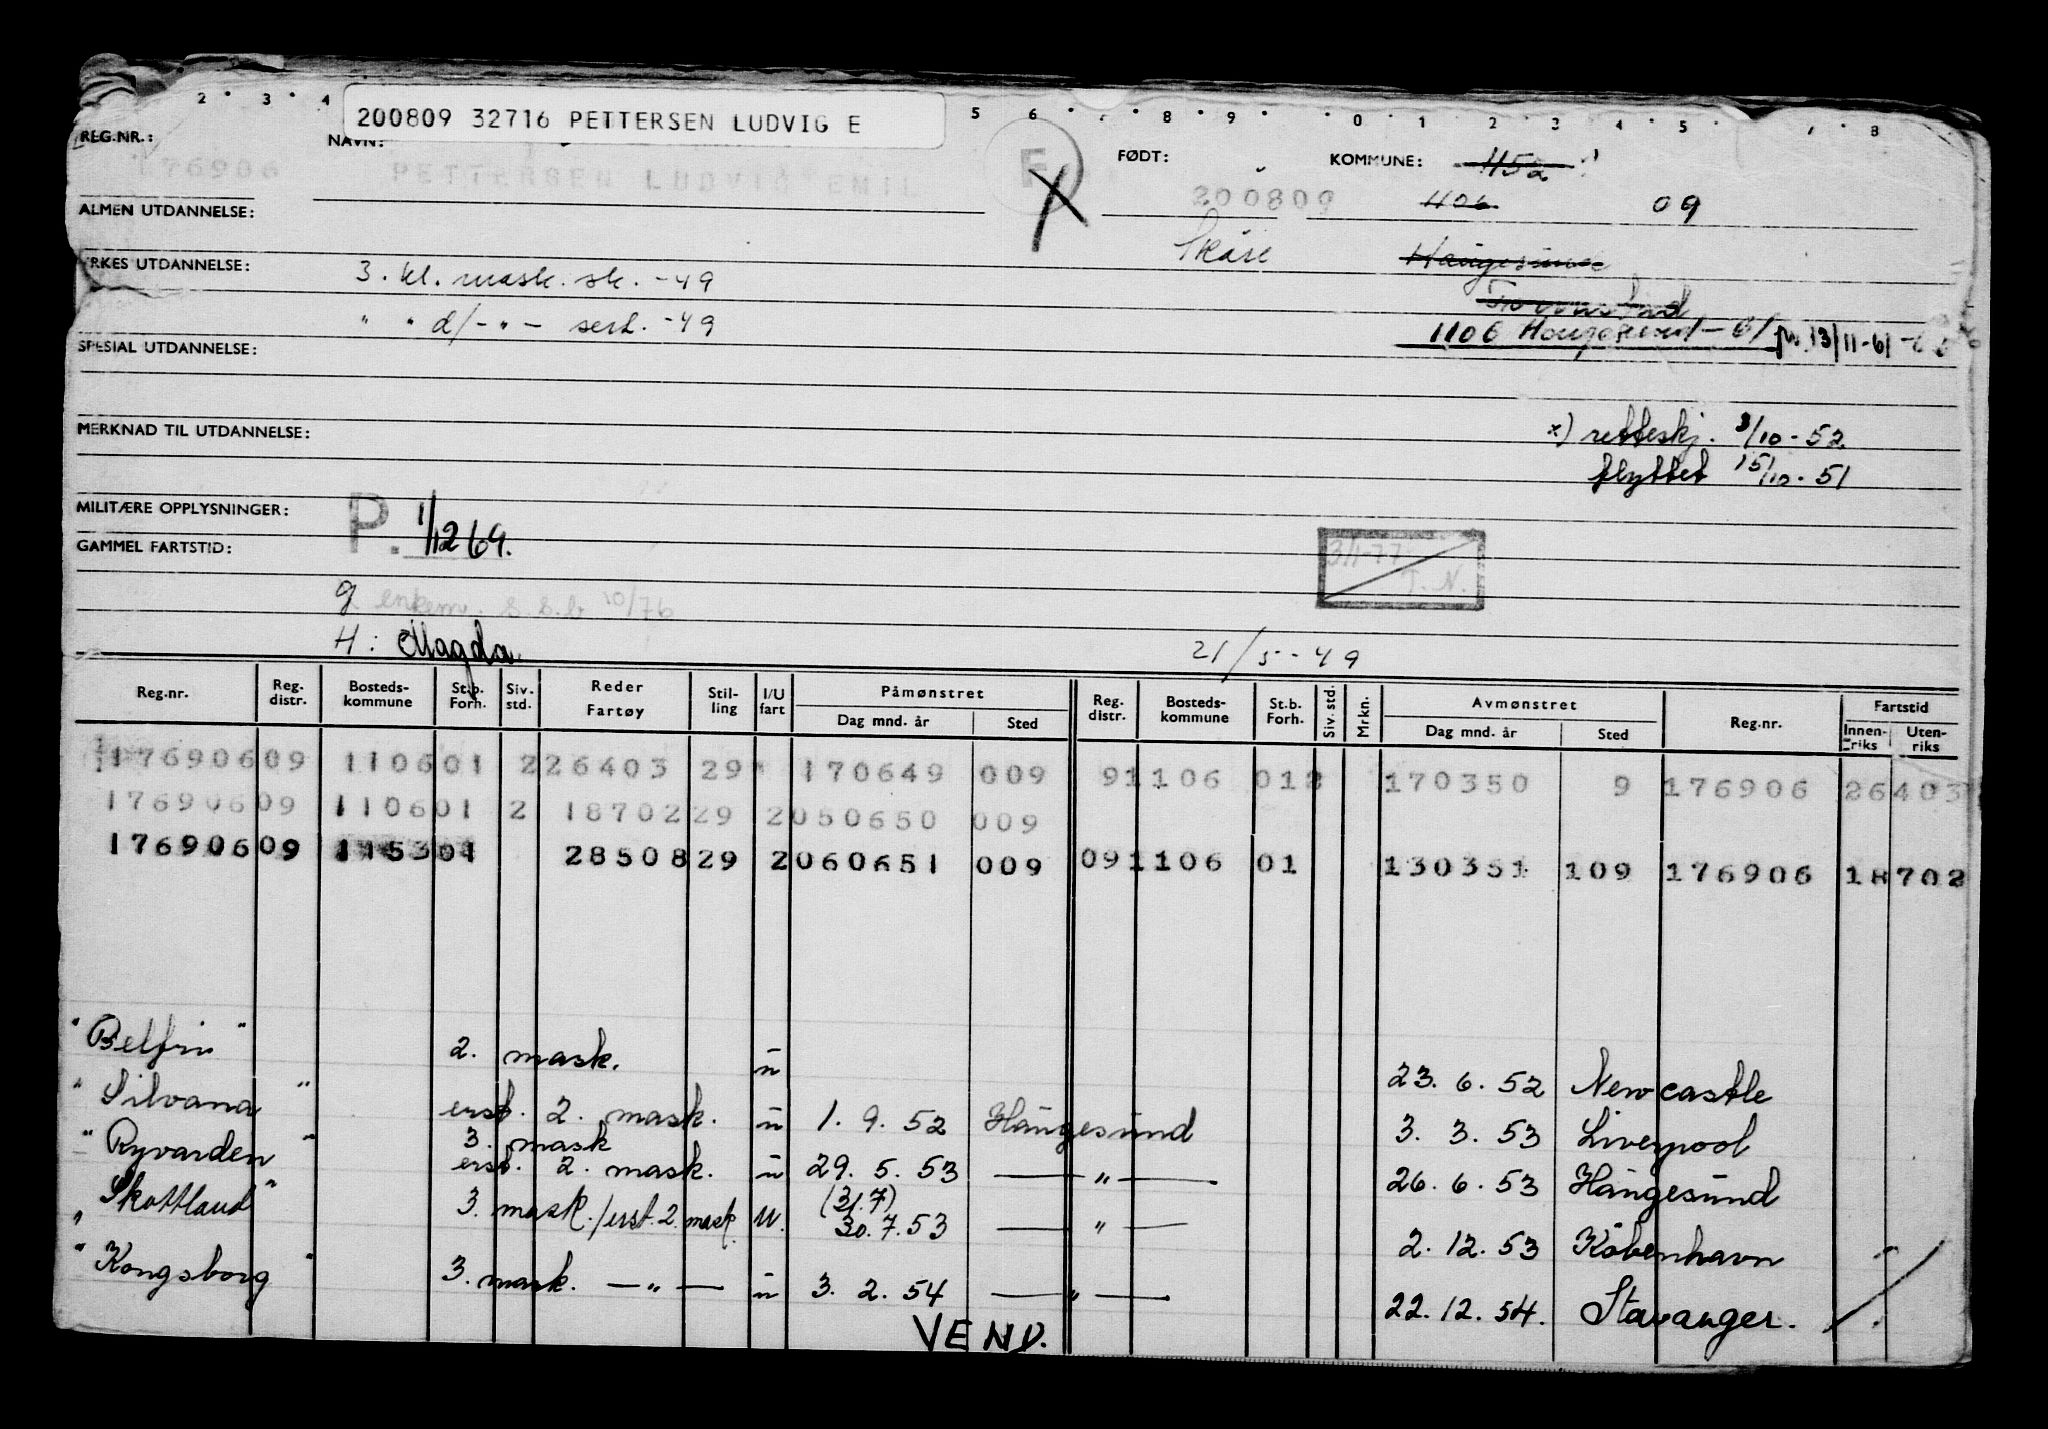 2 · 3 · 4 5 6 · 8 · 9 · · 0 · 1 · 2 · 3 · 4 · 5 · 8
200809 32716 PETTERSEN LUDVIG E
REG.NR.: NAVN: FØDT: KOMMUNE: 1152
176906 PETTERSEN LUDVIG EMIL F 200809 1106 09
ALMEN UTDANNELSE:
Skåre Haugesund
YRKES UTDANNELSE: 3. kl. mask. sk. -49
" " d/-"- sert. -49
1106 Haugesund - 61 13/11-61
SPESIAL UTDANNELSE:
MERKNAD TIL UTDANNELSE: x) retteskj. 3/10-52
flyttet 15/10-51
MILITÆRE OPPLYSNINGER: P. 1/12 69.
GAMMEL FARTSTID: 3/1-77 T. N.
g enkem. S.S.b 10/76
H: Magda 21/5-49
Reg.nr. Reg. distr. Bosteds-kommune St.b. Forh. Siv. std. Reder Fartøy Stil-ling I/U fart Påmønstret Dag mnd. år Sted Reg. distr. Bosteds-kommune St.b. Forh. Siv. std. Mrkn. Avmønstret Dag mnd. år Sted Reg.nr. Fartstid Innen-riks Uten-riks
176906 09 1106 01 2 26403 29 170649 009 9 1106 01 2 170350 9 176906 26403
176906 09 1106 01 2 18702 29 2 050650 009
176906 09 1153 01 28508 29 2 060651 009 09 1106 01 130351 109 176906 18702
"Belfri" 2. mask. u 23. 6. 52 Newcastle
"Silvana" erst. 2. mask. u 1. 9. 52 Haugesund 3. 3. 53 Liverpool
3. mask
"Ryvarden" erst. 2. mask. u 29. 5. 53 — " — 26. 6. 53 Haugesund
(31.7)
"Skottland" 3. mask./erst. 2. mask. u. 30. 7. 53 — " — 2. 12. 53 København
"Kongsborg" 3. mask. — " — u 3. 2. 54 — " — 22. 12. 54. Stavanger.
VEND.